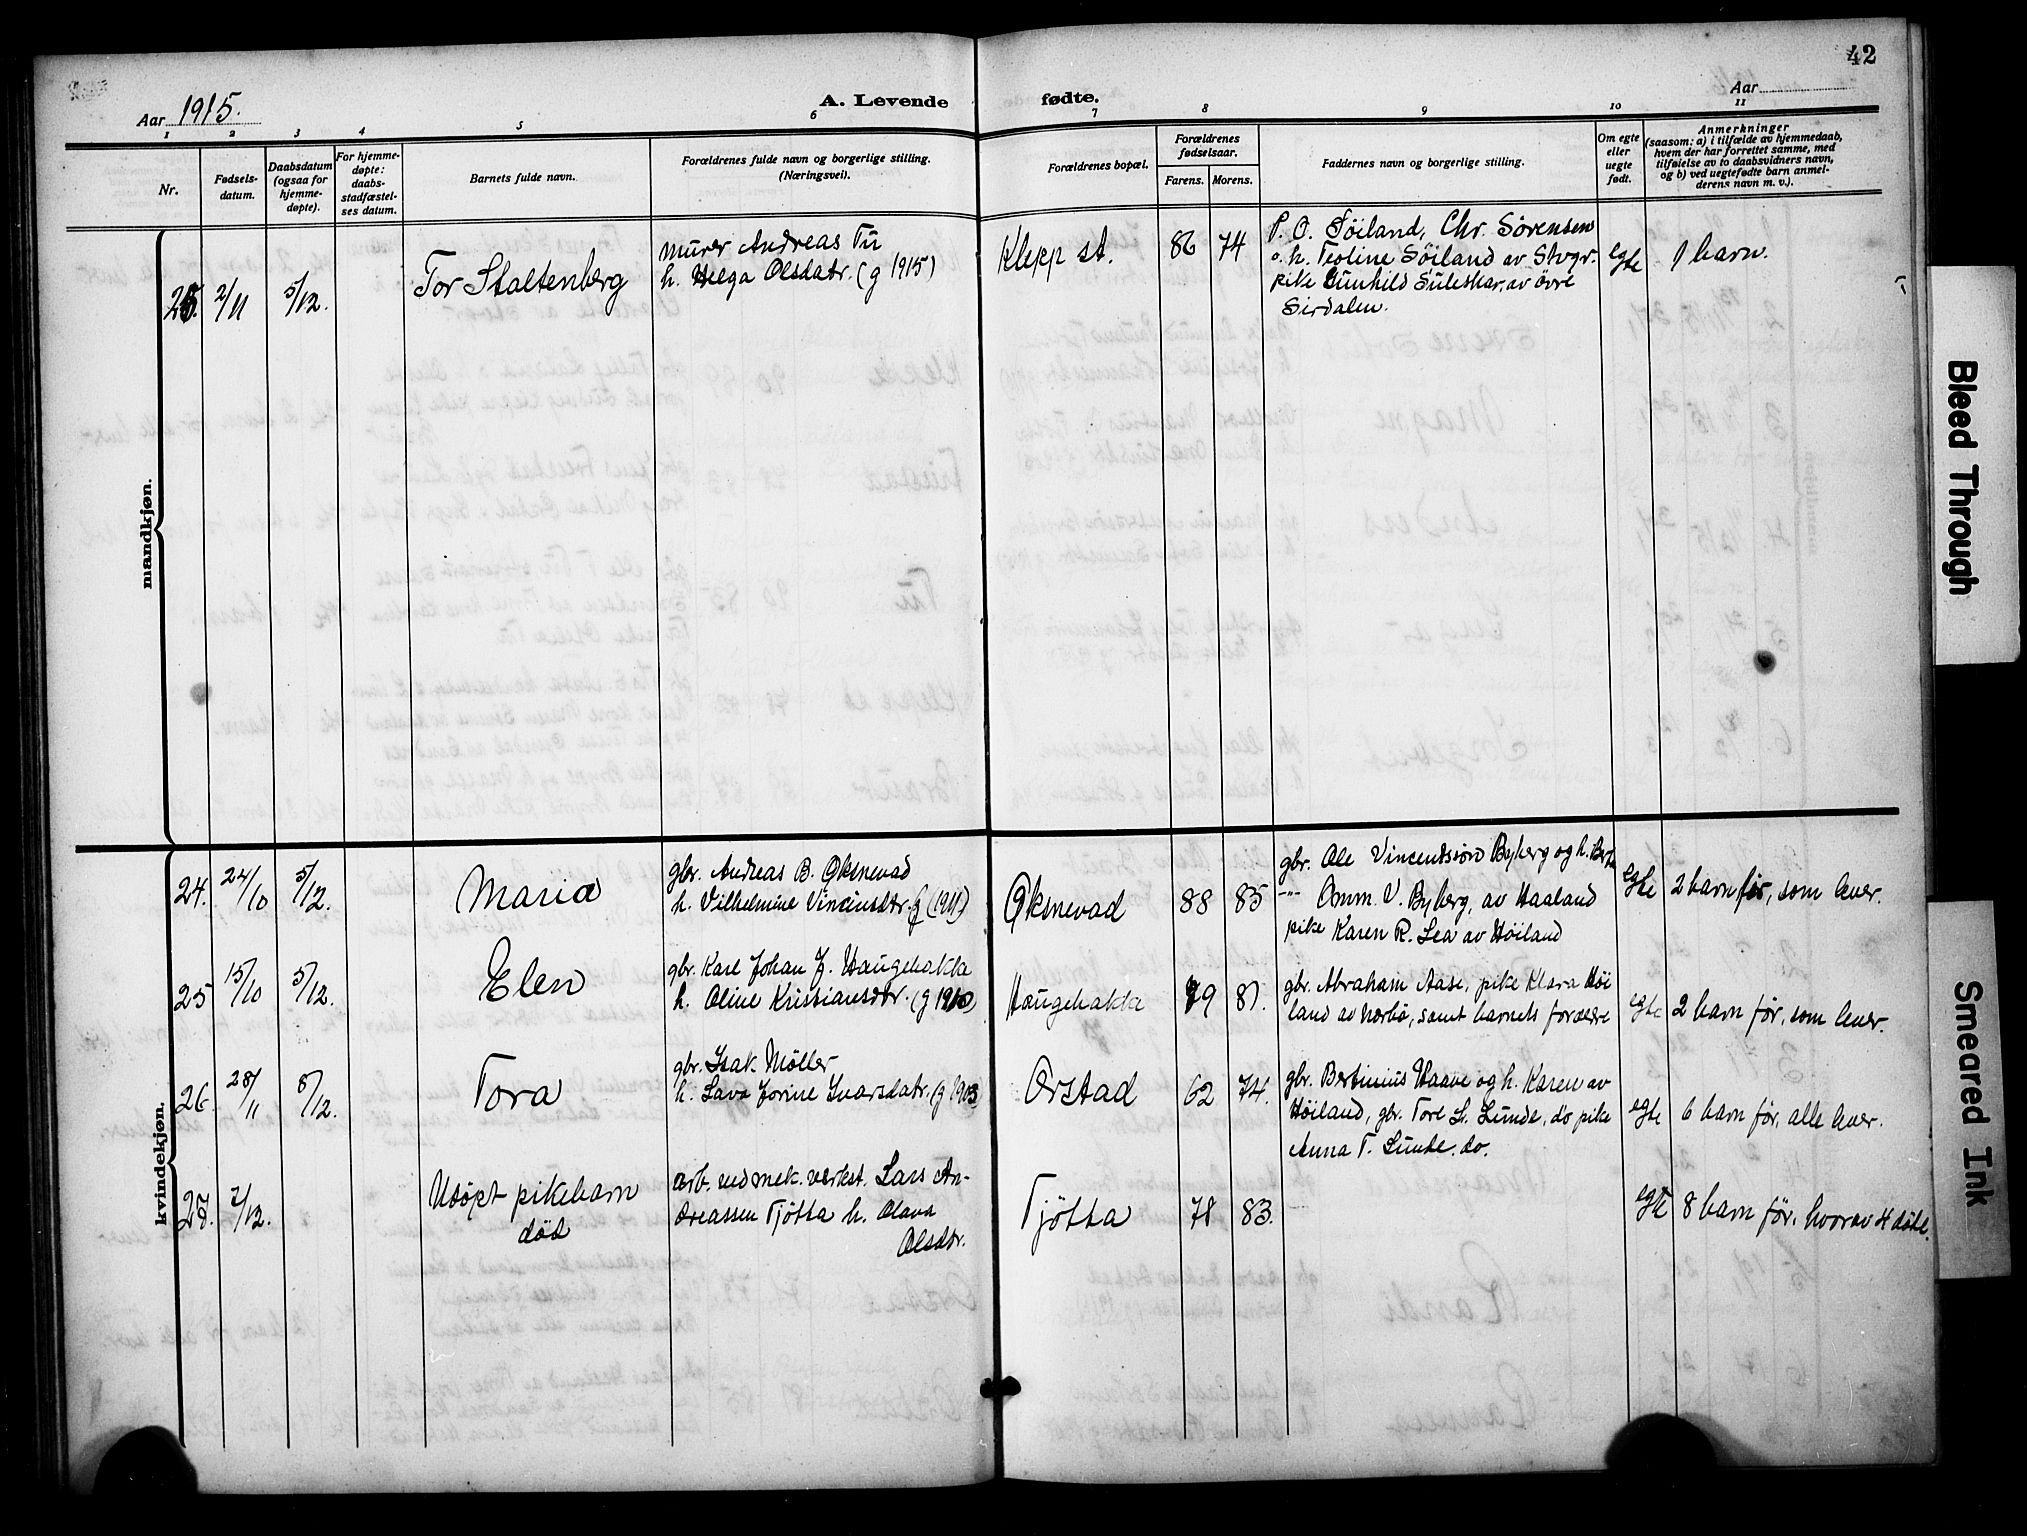 42
Aar 1915.
A. Levende
fødte.
Aar
1 2 3 4 5 6 7 8 9 10 11
Nr.
Fødsels-
datum.
Daabsdatum
(ogsaa for
hjemme-
døpte).
For hjemme-
døpte:
daabs-
stadfæstel-
ses datum.
Barnets fulde navn.
Forældrenes fulde navn og borgerlige stilling.
(Næringsvei).
Forældrenes bopæl.
Forældrenes
fødselsaar.
Farens. Morens.
Faddernes navn og borgerlige stilling.
Om egte
eller
uegte
født.
Anmerkninger
(saasom: a) i tilfælde av hjemmedaab,
hvem der har forrettet samme, med
tilføielse av to daabsvidners navn,
og b) ved uegtefødte barn anmel-
derens navn m. v.).
mandkjøn.
25. 2/11 5/12.
Tor Staltenberg
murer Andreas Tu
h. Helga Olsdatr. (g 1915)
Klepp st.
86 74
P. O. Söiland, Chr. Sørensen
o. h. Teoline Söiland av Stvgr.
pike Gunhild Suleskar, av övre
Sirdalen.
egte
1 barn.
kvindekjøn.
24. 24/10 5/12.
Maria
gbr. Andreas B. Øksnevad
h. Vilhelmine Vincentsdtr. g (1911)
Øksnevad
88 85
gbr. Ole Vincentssøn Byberg og h. Berta
-"- Omm. V. Byberg, av Haaland
pike Karen R. Lea av Höiland
egte
2 barn før, som lever.
25 15/10 5/12.
Elen
gbr. Karl Johan J. Haugehakke
h. Oline Kristiansdtr. (g 1910)
Haugehakke
79 81.
gbr. Abraham Aase, pike Klara Höi
land av Nærbø, samt barnets forældre
egte
2 barn før, som lever.
26. 28/11 8/12.
Tora
gbr. Isak Møller
h. Lava Jorine Ivarsdatr. (g 1903)
Orstad
62 74.
gbr. Bertinius Haave og h. Karen av
Höiland, gbr. Tore St. Lunde, do pike
Anna T. Lunde. do.
egte
6 barn før, alle lever.
27. 2/12.
Udöpt pikebarn
död
arb. ved mek. verkst. Lars An-
dreassen Tjötta h. Olava
Olsdtr.
Tjötta
78 83.
egte
8 barn før, hvorav 4 døde.
Bleed Through
Smeared Ink